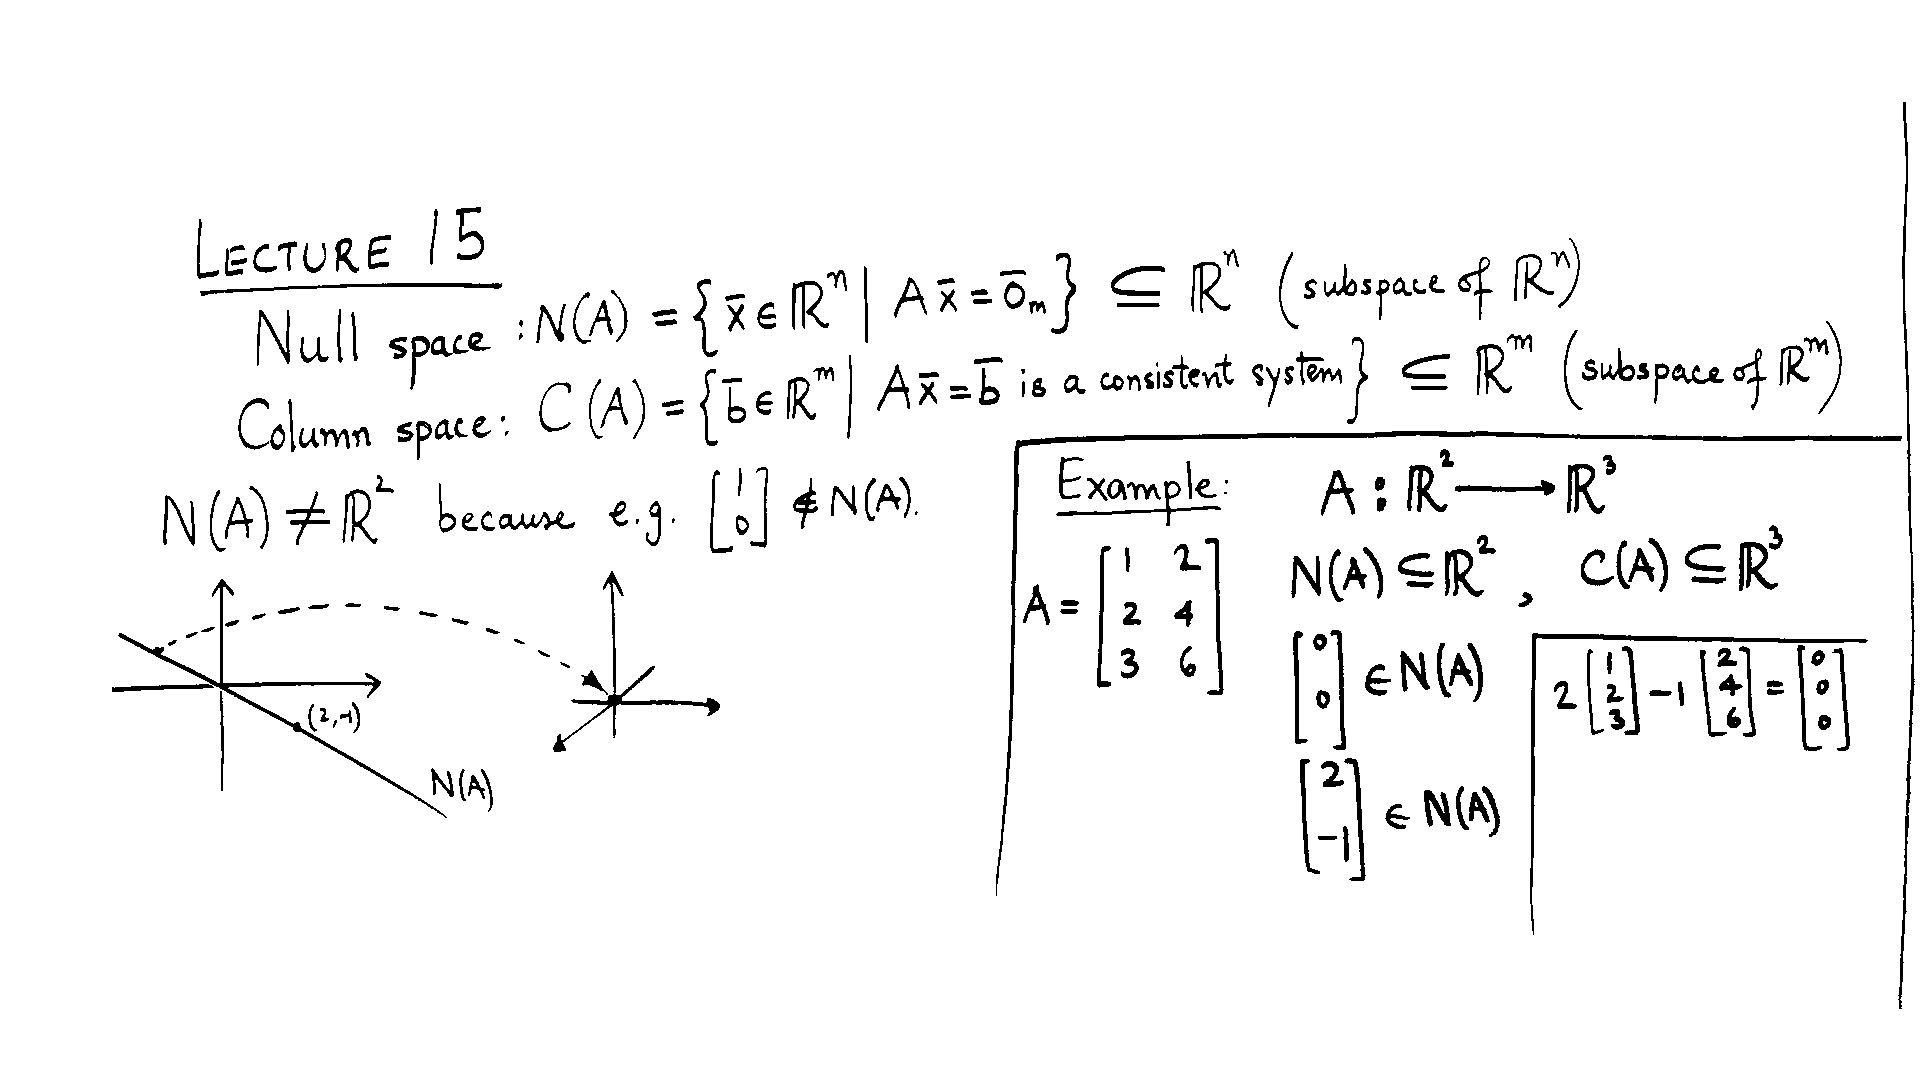 LECTURE 15
Null space : N(A) = { x̄ ∈ ℝⁿ | A x̄ = 0̄ₘ } ⊆ ℝⁿ (subspace of ℝⁿ)
Column space : C(A) = { b̄ ∈ ℝᵐ | A x̄ = b̄ is a consistent system } ⊆ ℝᵐ (subspace of ℝᵐ)
N(A) ≠ ℝ² because e.g. [1 0] ∉ N(A).
(2,-1)
N(A)
Example: A : ℝ² ⟶ ℝ³
A = [1 2
2 4
3 6]
N(A) ⊆ ℝ² , C(A) ⊆ ℝ³
[0 0] ∈ N(A)
[2 -1] ∈ N(A)
2 [1 2 3] -1 [2 4 6] = [0 0 0]